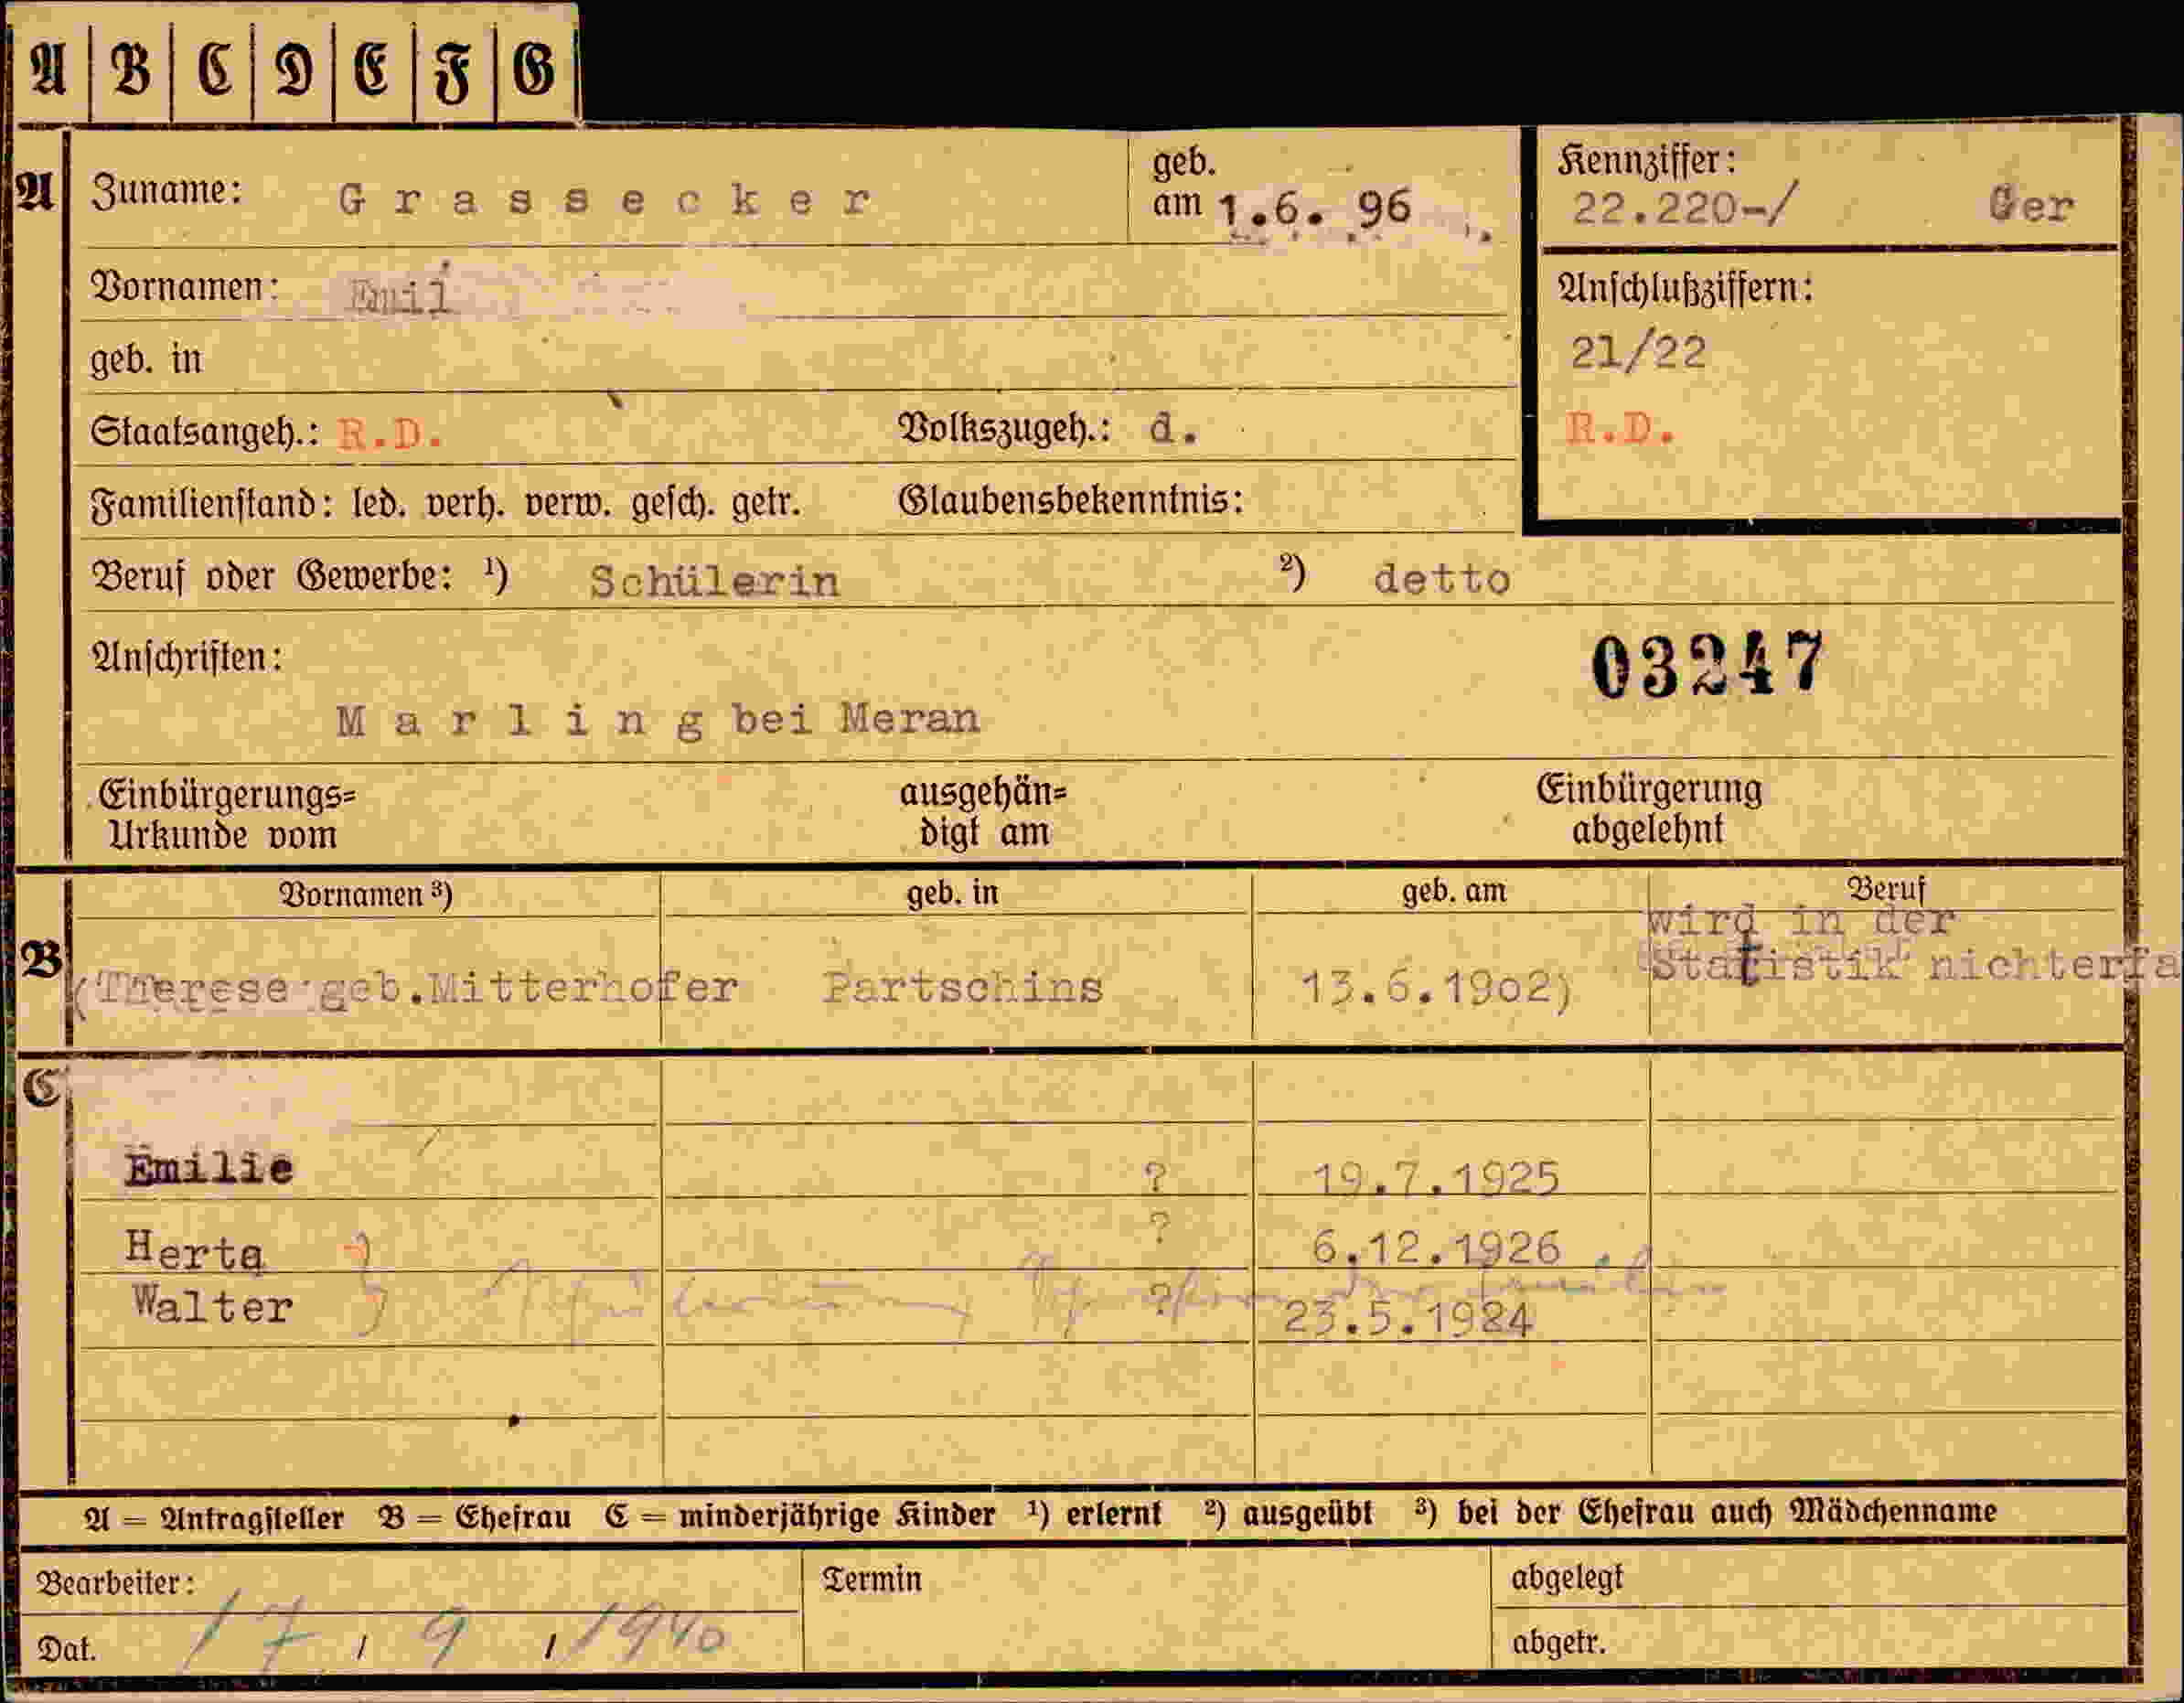 A B C D E F G
A Zuname: Grassecker geb. am 1.6. 96 Kennziffer: 22.220-/ Ger
Vornamen: Emil
Anschlußziffern:
geb. in 21/22
Staatsangeh.: R.D. Volkszugeh.: d. R.D.
Familienstand: led. verh. verw. gesch. getr. Glaubensbekenntnis:
Beruf oder Gewerbe: ¹) Schülerin ²) detto
Anschriften: 03247
Marling bei Meran
Einbürgerungs= ausgehän= Einbürgerung
Urkunde vom digt am abgelehnt
Vornamen ³) geb. in geb. am Beruf
wird in der
Statistik nichterfa
B (Therese geb.Mitterhofer Partschins 13.6.1902)
C
Emilie ? 19.7.1925
Herta ? 6.12.1926
Walter ? 23.5.1924
A = Antragsteller B = Ehefrau C = minderjährige Kinder ¹) erlernt ²) ausgeübt ³) bei der Ehefrau auch Mädchenname
Bearbeiter: Termin abgelegt
Dat. 17, 9, 1940 abgetr.